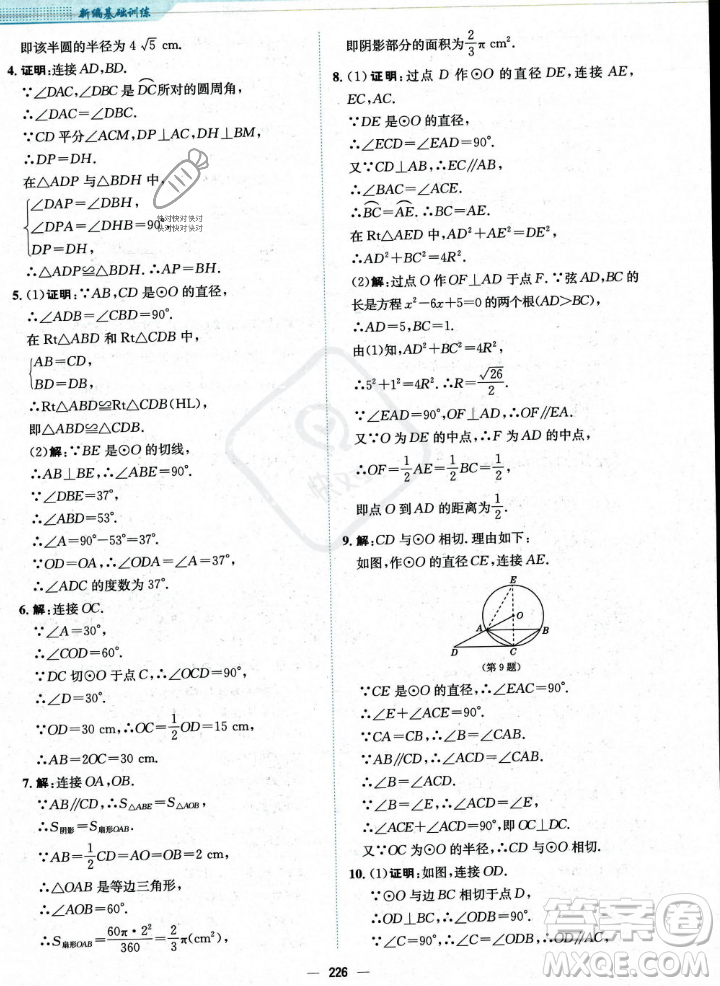 新编基础训练
即该半圆的半径为 4√5 cm.
4. 证明:连接 AD,BD.
∵∠DAC,∠DBC 是 D͡C 所对的圆周角,
∴∠DAC=∠DBC.
∵CD 平分∠ACM,DP⊥AC,DH⊥BM,
∴DP=DH.
在△ADP 与△BDH 中,
{∠DAP=∠DBH,
∠DPA=∠DHB=90°,
DP=DH,
快对快对快对
快对快对快对
∴△ADP≌△BDH.∴AP=BH.
5. (1)证明:∵AB,CD 是⊙O 的直径,
∴∠ADB=∠CBD=90°.
在 Rt△ABD 和 Rt△CDB 中,
{AB=CD,
BD=DB,
∴Rt△ABD≌Rt△CDB(HL),
即△ABD≌△CDB.
(2)解:∵BE 是⊙O 的切线,
∴AB⊥BE,∴∠ABE=90°.
∵∠DBE=37°,
∴∠ABD=53°.
∴∠A=90°-53°=37°.
∵OD=OA,∴∠ODA=∠A=37°,
∴∠ADC 的度数为 37°.
6. 解:连接 OC.
∵∠A=30°,
∴∠COD=60°.
∵DC 切⊙O 于点 C,∴∠OCD=90°,
∴∠D=30°.
∵OD=30 cm,∴OC=1/2OD=15 cm,
∴AB=2OC=30 cm.
7. 解:连接 OA,OB.
∵AB∥CD,∴S△ABE=S△AOB.
∴S阴影=S扇形OAB.
∵AB=1/2CD=AO=BO=2 cm,
∴△OAB 是等边三角形,
∴∠AOB=60°.
∴S扇形OAB=60π·2²/360=2/3π(cm²),
即阴影部分的面积为2/3π cm².
8. (1)证明:过点 D 作⊙O 的直径 DE,连接 AE,
EC,AC.
∵DE 是⊙O 的直径,
∴∠ECD=∠EAD=90°.
又∵CD⊥AB,∴EC∥AB,
∴∠BAC=∠ACE.
∴B͡C=A͡E.∴BC=AE.
在 Rt△AED 中,AD²+AE²=DE²,
∴AD²+BC²=4R².
(2)解:过点 O 作 OF⊥AD 于点 F.∵弦 AD,BC 的
长是方程 x²-6x+5=0 的两个根(AD>BC),
∴AD=5,BC=1.
由(1)知,AD²+BC²=4R²,
∴5²+1²=4R².∴R=√26/2.
∵∠EAD=90°,OF⊥AD,∴OF∥AE.
又∵O 为 DE 的中点,∴F 为 AD 的中点,
∴OF=1/2AE=1/2BC=1/2,
即点 O 到 AD 的距离为1/2.
9. 解:CD 与⊙O 相切.理由如下:
如图,作⊙O 的直径 CE,连接 AE.
E
A
O
B
D
C
(第 9 题)
∵CE 是⊙O 的直径,∴∠EAC=90°,
∴∠E+∠ACE=90°.
∵CA=CB,∴∠B=∠CAB.
∵AB∥CD,∴∠ACD=∠CAB.
∵∠B=∠E,∴∠ACD=∠E,
∴∠ACE+∠ACD=90°,即 OC⊥DC.
又∵OC 为⊙O 的半径,∴CD 与⊙O 相切.
10. (1)证明:如图,连接 OD.
∵⊙O 与边 BC 相切于点 D,
∴OD⊥BC,∴∠ODB=90°.
∵∠C=90°,∴∠C=∠ODB,∴OD∥AC,
226
答案圈
MXQE.COM